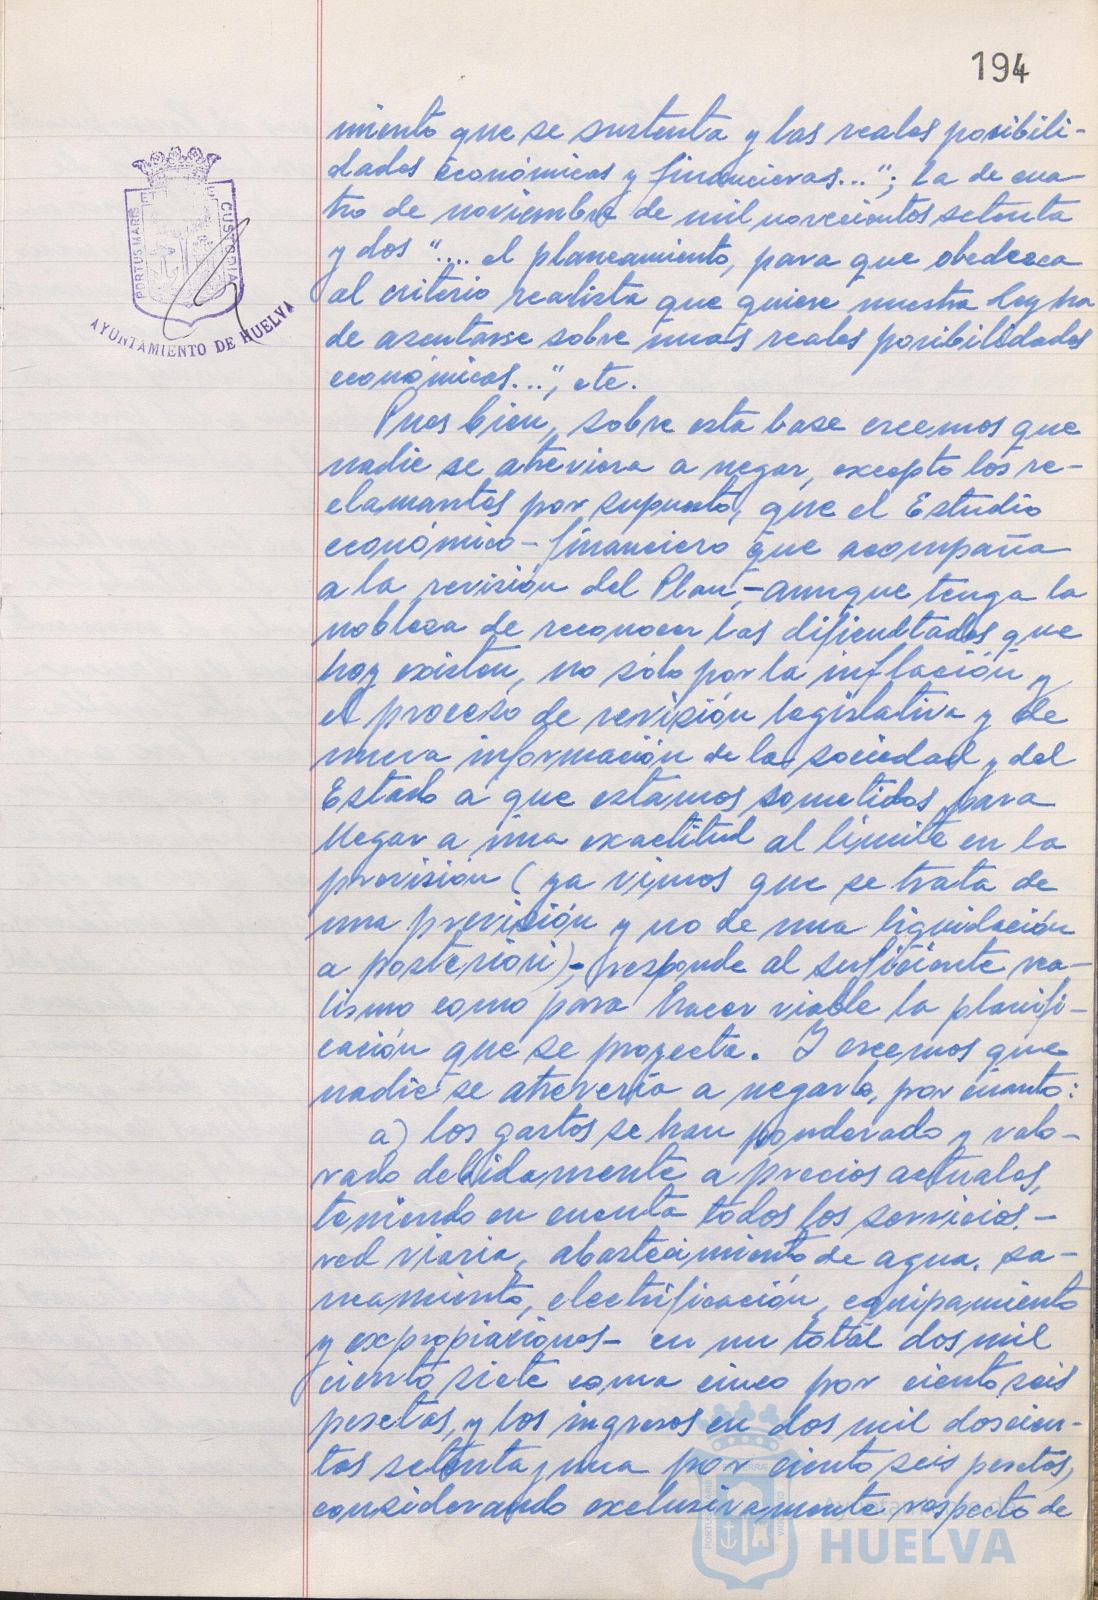 194
PORTUS MARIS
CUSTODIA
AYUNTAMIENTO DE HUELVA
miento que se sustenta y las reales posibili-
dades económicas y financieras..."; la de cua-
tro de noviembre de mil novecientos setenta
y dos ".... el planeamiento, para que obedezca
al criterio realista que quiere nuestra Ley ha
de asentarse sobre unas reales posibilidades
económicas...", etc.
Pues bien, sobre esta base creemos que
nadie se atreviera a negar, excepto los re-
clamantes por supuesto, que el Estudio
económico-financiero que acompaña
a la revisión del Plan, -aunque tenga la
nobleza de reconocer las dificultades que
hoy existen, no sólo por la inflación y
el proceso de revisión legislativa y de
nueva información de la sociedad y del
Estado a que estamos sometidos, para
llegar a una exactitud al límite en la
previsión (ya vimos que se trata de
una previsión y no de una liquidación
a posteriori)- responde al suficiente rea-
lismo como para hacer viable la planifi-
cación que se proyecta. Y creemos que
nadie se atrevería a negarlo, por cuanto:
a) los gastos se han ponderado y valo-
rado debidamente a precios actuales,
teniendo en cuenta todos los servicios, -
red viaria, abastecimiento de agua, sa-
neamiento, electrificación, equipamiento
y expropiaciones- en un total dos mil
ciento siete coma cinco por ciento seis
pesetas, y los ingresos en dos mil doscien-
tos setenta y una por ciento seis pesetas,
considerando exclusivamente respecto de
Ayuntamiento de
HUELVA